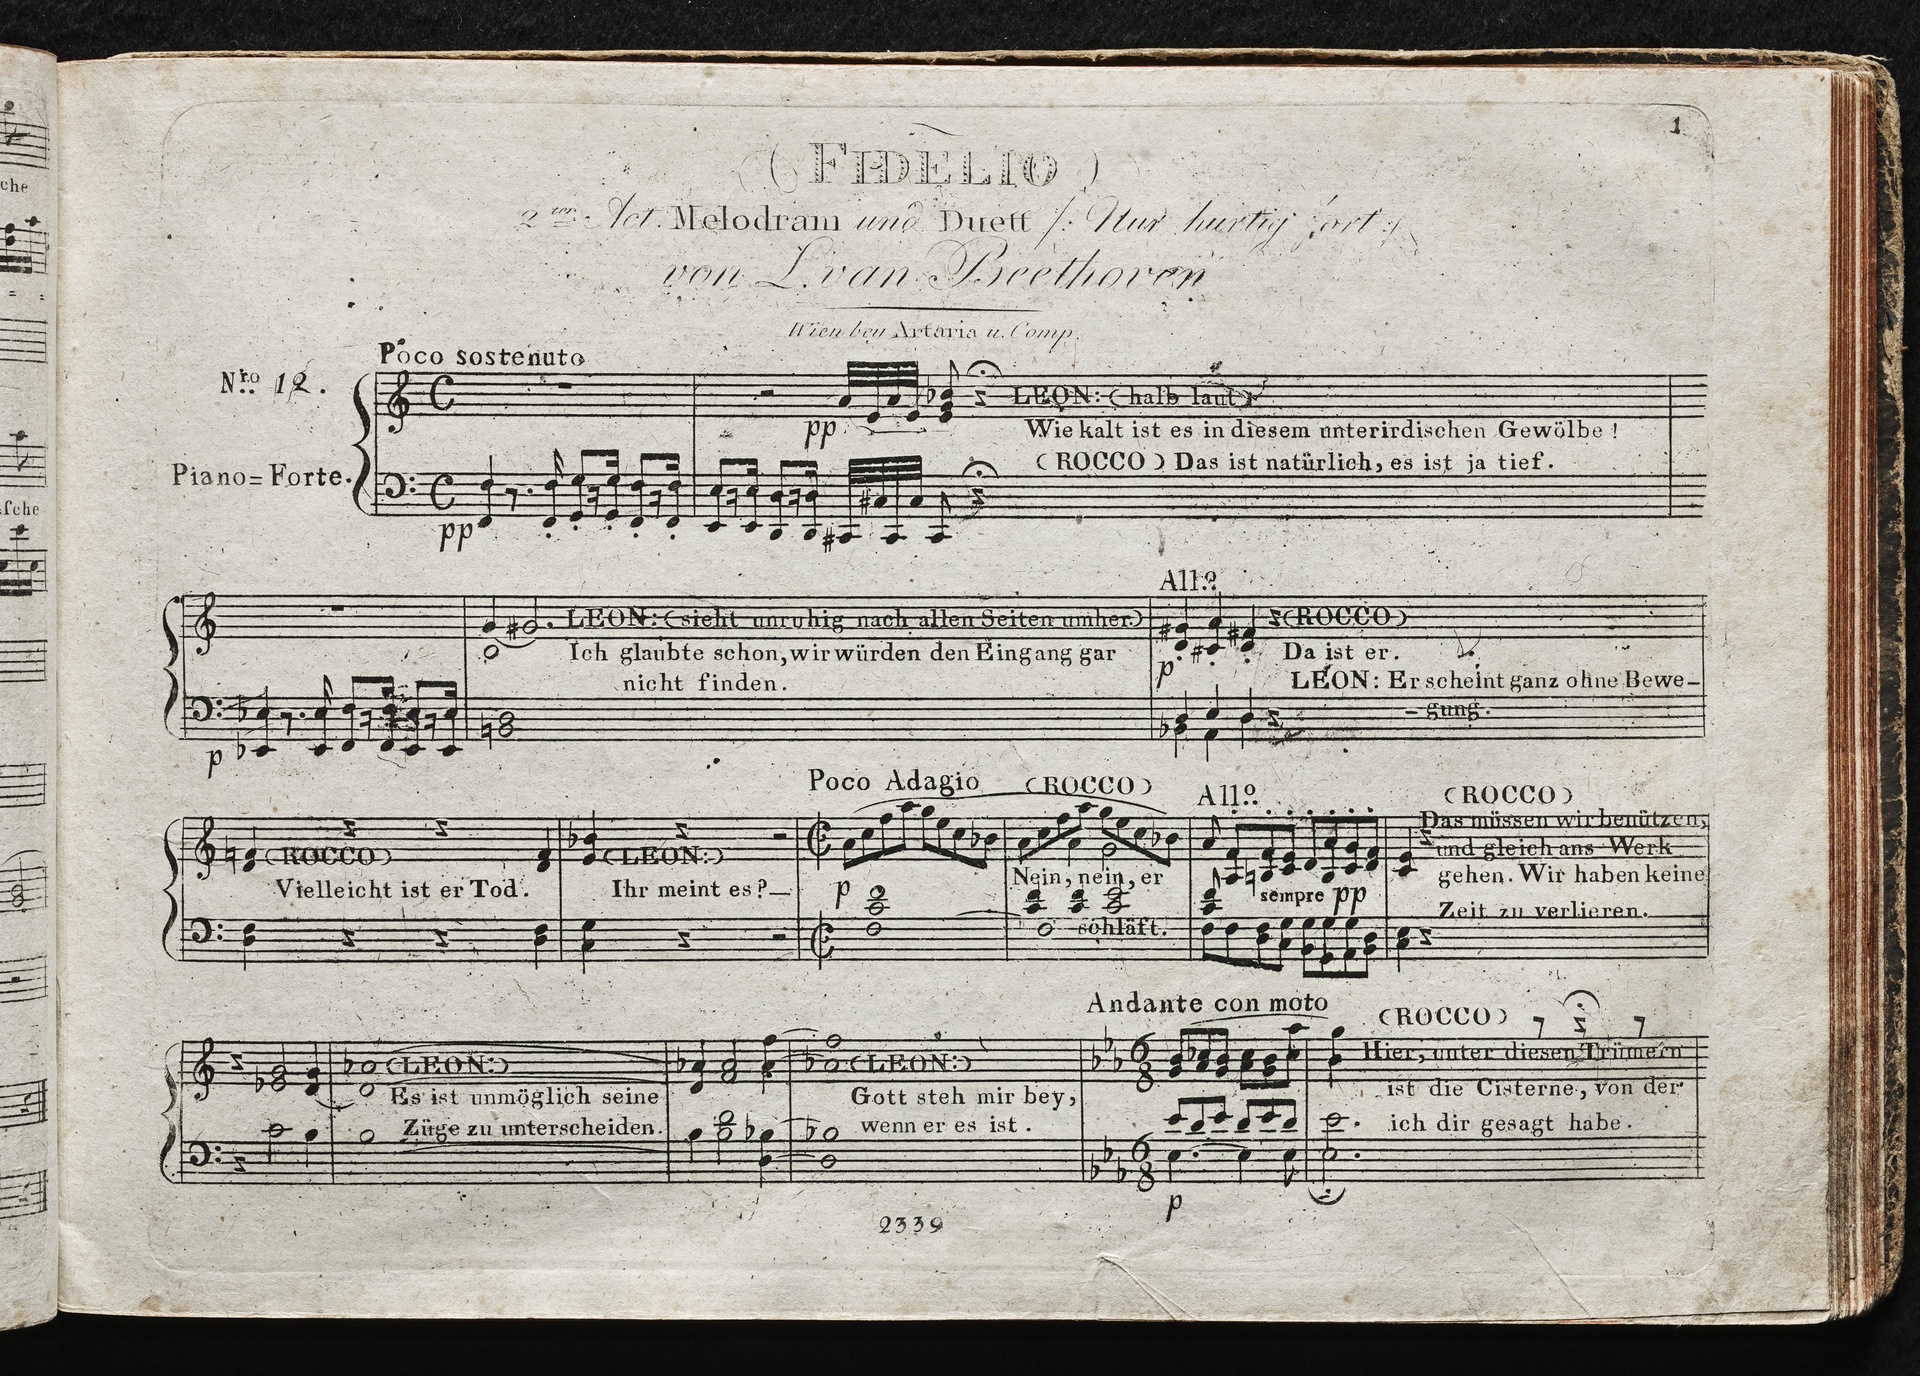 1
(FIDELIO)
2ter Act. Melodram und Duett /: Nur hurtig fort :/
von L. van Beethoven
Wien bey Artaria u. Comp.
Poco sostenuto
Nro 12.
LEON: (halb laut)
pp
Wie kalt ist es in diesem unterirdischen Gewölbe!
(ROCCO) Das ist natürlich, es ist ja tief.
Piano=Forte.
pp
All?o
LEON: (sieht unruhig nach allen Seiten umher.)
(ROCCO)
Ich glaubte schon, wir würden den Eingang gar
Da ist er.
p
nicht finden.
LEON: Er scheint ganz ohne Bewe-
-gung.
p
Poco Adagio (ROCCO) All?o (ROCCO)
Das müssen wir benützen,
(ROCCO) (LEON:)
und gleich ans Werk
Vielleicht ist er Tod. Ihr meint es?—
p
Nein, nein, er
sempre pp
gehen. Wir haben keine
Zeit zu verlieren.
schläft.
Andante con moto
(ROCCO)
(LEON:) (LEON:)
Hier, unter diesen Trümern
Es ist unmöglich seine
Gott steh mir bey,
ist die Cisterne, von der
Züge zu unterscheiden.
wenn er es ist.
ich dir gesagt habe.
p
2339
che
sche